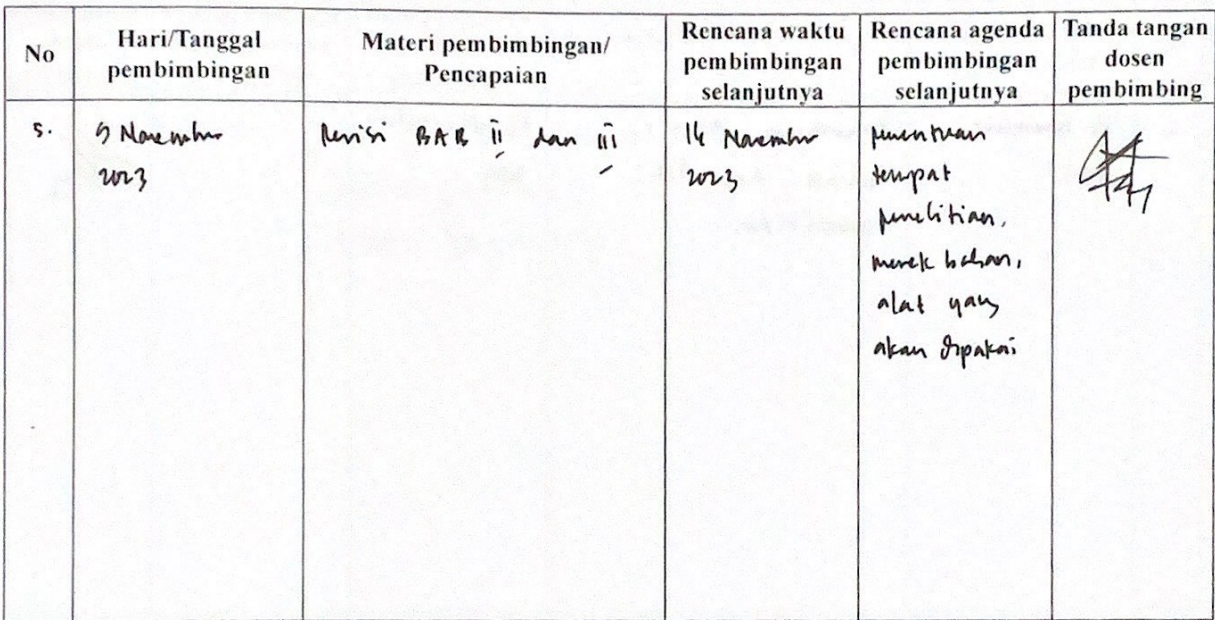 No
Hari/Tanggal
pembimbingan
Materi pembimbingan/
Pencapaian
Rencana waktu
pembimbingan
selanjutnya
Rencana agenda
pembimbingan
selanjutnya
Tanda tangan
dosen
pembimbing
5.
9 November
2023
Revisi BAB ii dan iii
14 November
2023
penentuan
tempat
penelitian,
merek bahan,
alat yang
akan dipakai